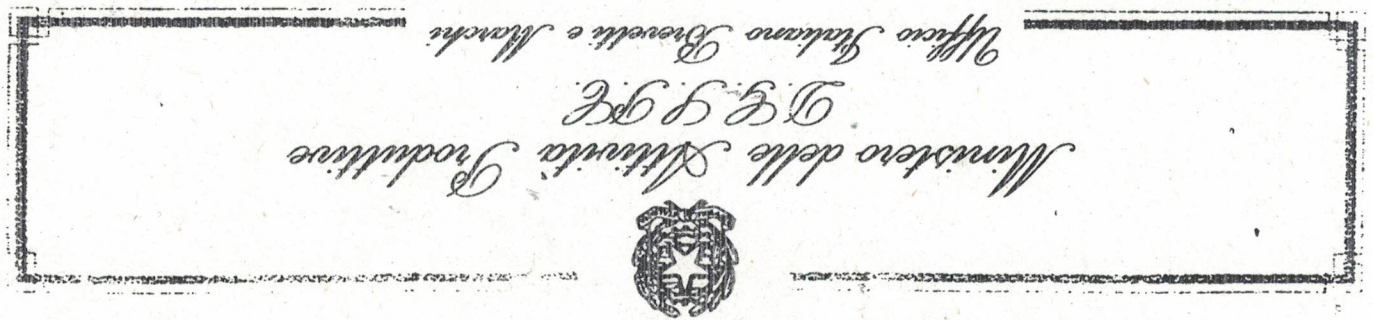 Ministero delle Attività Produttive
D.G.S.P.C.
Ufficio Italiano Brevetti e Marchi